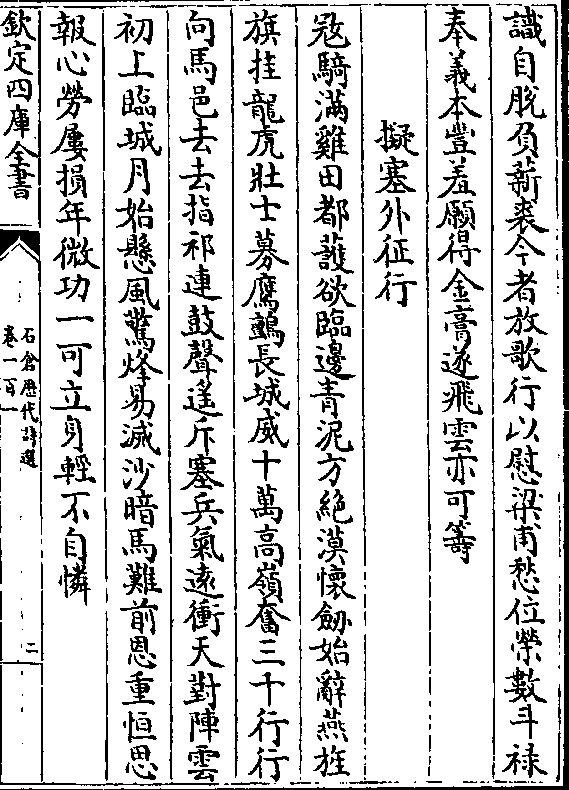 識自脫負薪裘今者放歌行以慰梁甫愁位榮數斗禄
奉義本豐羞願得金膏遂飛雲亦可籌
擬塞外征行
㓂騎滿雞田都護欲臨邊青泥方絶漠懷劒始辭燕旌
旗挂龍虎壯士募鷹鸇長城威十萬高嶺奮三千行行
向馬邑去去指祁連鼓聲遙斥塞兵氣遠衝天對陣雲
初上臨城月始懸風驚烽易滅沙暗馬難前恩重恒思
報心勞屢損年微功一可立身輕不自憐
欽定四庫全書
石倉歷代詩選
卷一百一
二